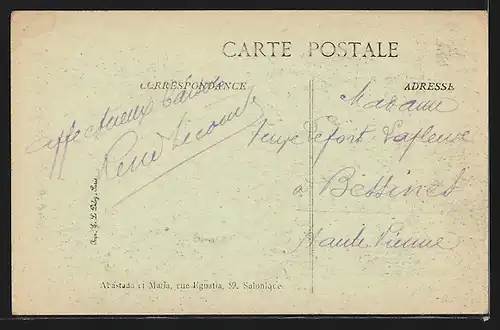 CARTE POSTALE
CORRESPONDANCE
ADRESSE
Affectueux baisers
René Lecomte
Madame
Veuve Lefort-Lafleur
à Bessines
Haute Vienne
Abastado et Maila, rue Egnatia, 59, Salonique